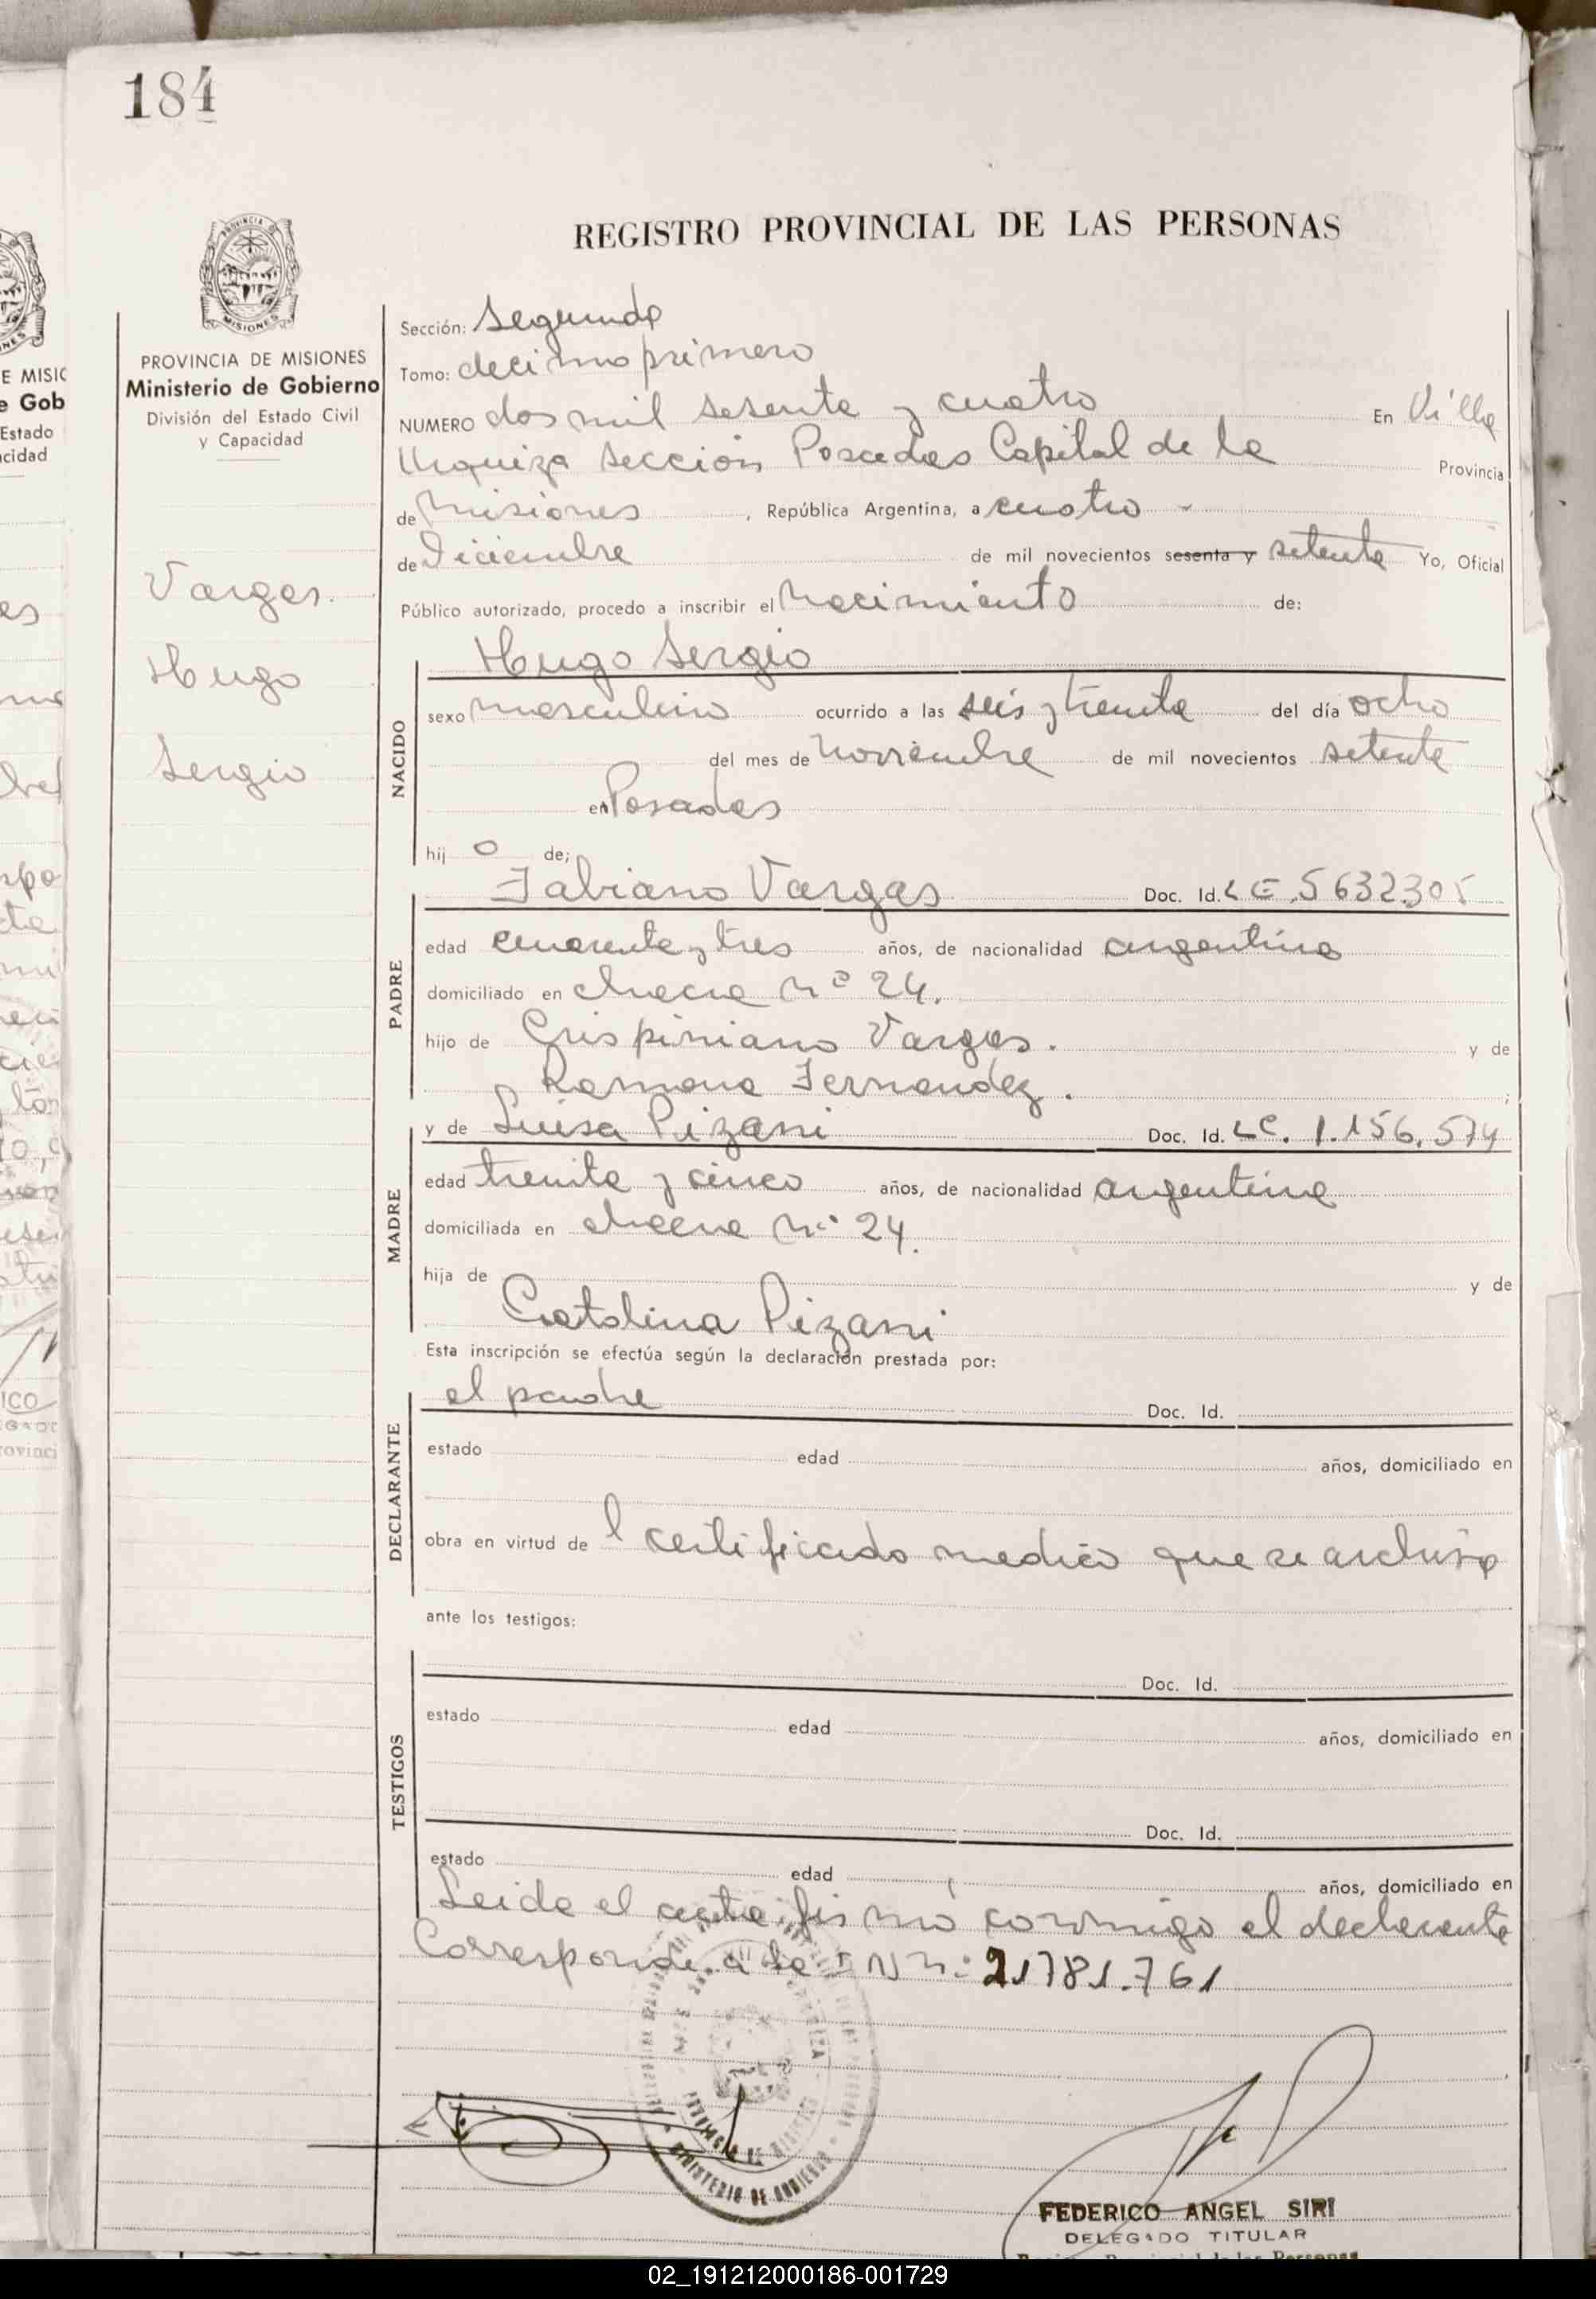 184
REGISTRO PROVINCIAL DE LAS PERSONAS
PROVINCIA DE MISIONES
Ministerio de Gobierno
División del Estado Civil
y Capacidad
Vargas.
Hugo
Sergio
Sección: Segunda
Tomo: decimo primero
NUMERO dos mil sesenta y cuatro En Villa
Urquiza Sección Posadas Capital de la Provincia
de Misiones, República Argentina, a cuatro -
de Diciembre de mil novecientos sesenta y setenta Yo, Oficial
Público autorizado, procedo a inscribir el Nacimiento de:
Hugo Sergio
NACIDO
sexo masculino ocurrido a las seis y treinta del día ocho
del mes de noviembre de mil novecientos setenta
en Posadas
hij o de;
Fabiano Vargas Doc. Id. LE. 5632305
PADRE
edad cuarenta y tres años, de nacionalidad argentina
domiciliado en chacra nº 24.
hijo de Crispiniano Vargas. y de
Ramona Fernandez.
y de Luisa Pizani Doc. Id. LC. 1.156.574
MADRE
edad treinta y cinco años, de nacionalidad argentina
domiciliada en chacra nº 24.
hija de y de
Catalina Pizani
Esta inscripción se efectúa según la declaración prestada por:
el padre Doc. Id.
DECLARANTE
estado edad años, domiciliado en
obra en virtud de l certificado medico que se archiva
ante los testigos:
Doc. Id.
TESTIGOS
estado edad años, domiciliado en
Doc. Id.
estado edad años, domiciliado en
Leida el acta, firmó conmigo el declarante
Corresponde a la I N nº: 21781.761
MINISTERIO DE GOBIERNO
FEDERICO ANGEL SIRI
DELEGADO TITULAR
02_191212000186-001729